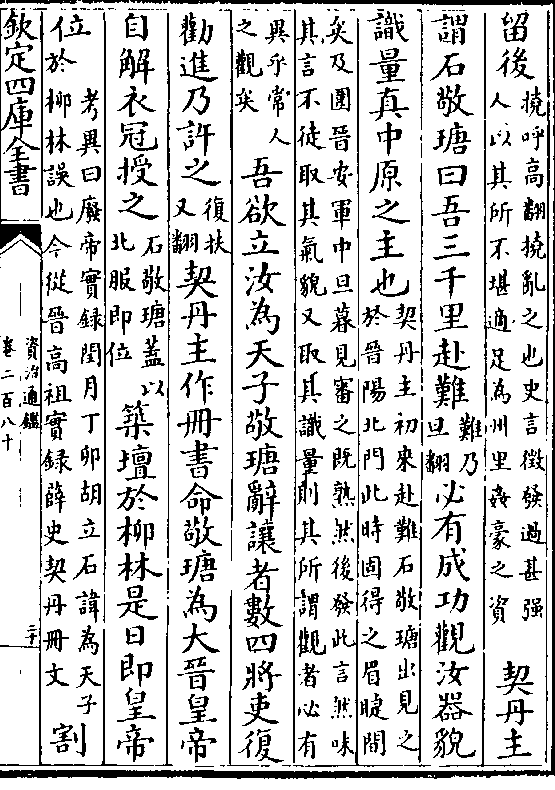 留後撓呼高翻撓亂之也史言徵發過甚强
人以其所不堪適足為州里姦豪之資契丹主
謂石敬瑭曰吾三千里赴難難乃
旦翻必有成功觀汝器貌
識量真中原之主也契丹主初來赴難石敬瑭出見之
於晉陽北門此時固得之眉睫間
矣及圍晉安軍中旦暮見審之既熟然後發此言然味
其言不徒取其氣貌又取其識量則其所謂觀者必有
異乎常人
之觀矣吾欲立汝為天子敬瑭辭讓者數四將吏復
勸進乃許之復扶
又翻契丹主作冊書命敬瑭為大晉皇帝
自解衣冠授之石敬瑭蓋以
北服即位築壇於柳林是日即皇帝
位考異曰廢帝實録閏月丁卯胡立石諱為天子
於栁林誤也今從晉高祖實録薛史契丹冊文割
欽定四庫全書
資治通鑑
卷二百八十
三十